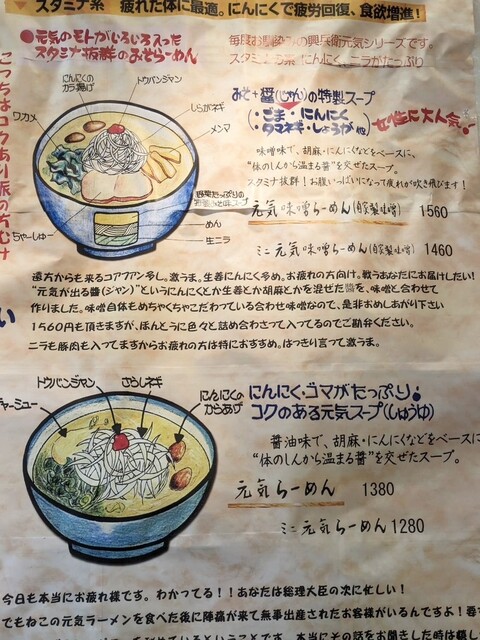 ▼スタミナ系 疲れた体に最適。にんにくで疲労回復、食欲増進！
●元気のモトがいろいろ入った
スタミナ抜群のみそらーめん
スタミナ系 にんにく、ニラがたっぷり
こっちはコクあり派の方むけ
にんにくの
カラ揚げ
トウバンジャン
しらがネギ
メンマ
ワカメ
ちゃーしゅー
めん
生ニラ
みそ+醤(じゃん)の特製スープ
(・ごま・にんにく
・タマネギ・しょうが 他)
女性に大人気！
味噌味で、胡麻・にんにくなどをベースに、
“体のしんから温まる醤”を交ぜたスープ。
スタミナ抜群！お腹いっぱいになって疲れが吹き飛びます！
元気味噌らーめん(自家製味噌) 1560
ミニ元気味噌らーめん(自家製味噌) 1460
遠方からも来るコアファン多し。激うま。生姜にんにく多め。お疲れの方向け。戦うあなたにお届けしたい！
“元気が出る醤(ジャン)”というにんにくとか生姜とか胡麻とかを混ぜた醤を、味噌と合わせて
作りました。味噌自体もめちゃくちゃこだわっている合わせ味噌なので、是非おめしあがり下さい
1560円も頂きますが、ほんとうに色々と詰め合わさって入ってるのでご勘弁ください。
ニラも豚肉も入ってますからお疲れの方は特におすすめ。はっきり言って激うま。
トウバンジャン
さらしネギ
にんにくの
からあげ
チャーシュー
にんにく・ゴマがたっぷり！
コクのある元気スープ(しょうゆ)
醤油味で、胡麻・にんにくなどをベースに
“体のしんから温まる醤”を交ぜたスープ。
元気らーめん 1380
ミニ元気らーめん 1280
今日も本当にお疲れ様です。わかってる！！あなたは総理大臣の次に忙しい！
でもねこの元気ラーメンを食べた後に陣痛が来て無事出産されたお客様がいるんですよ！